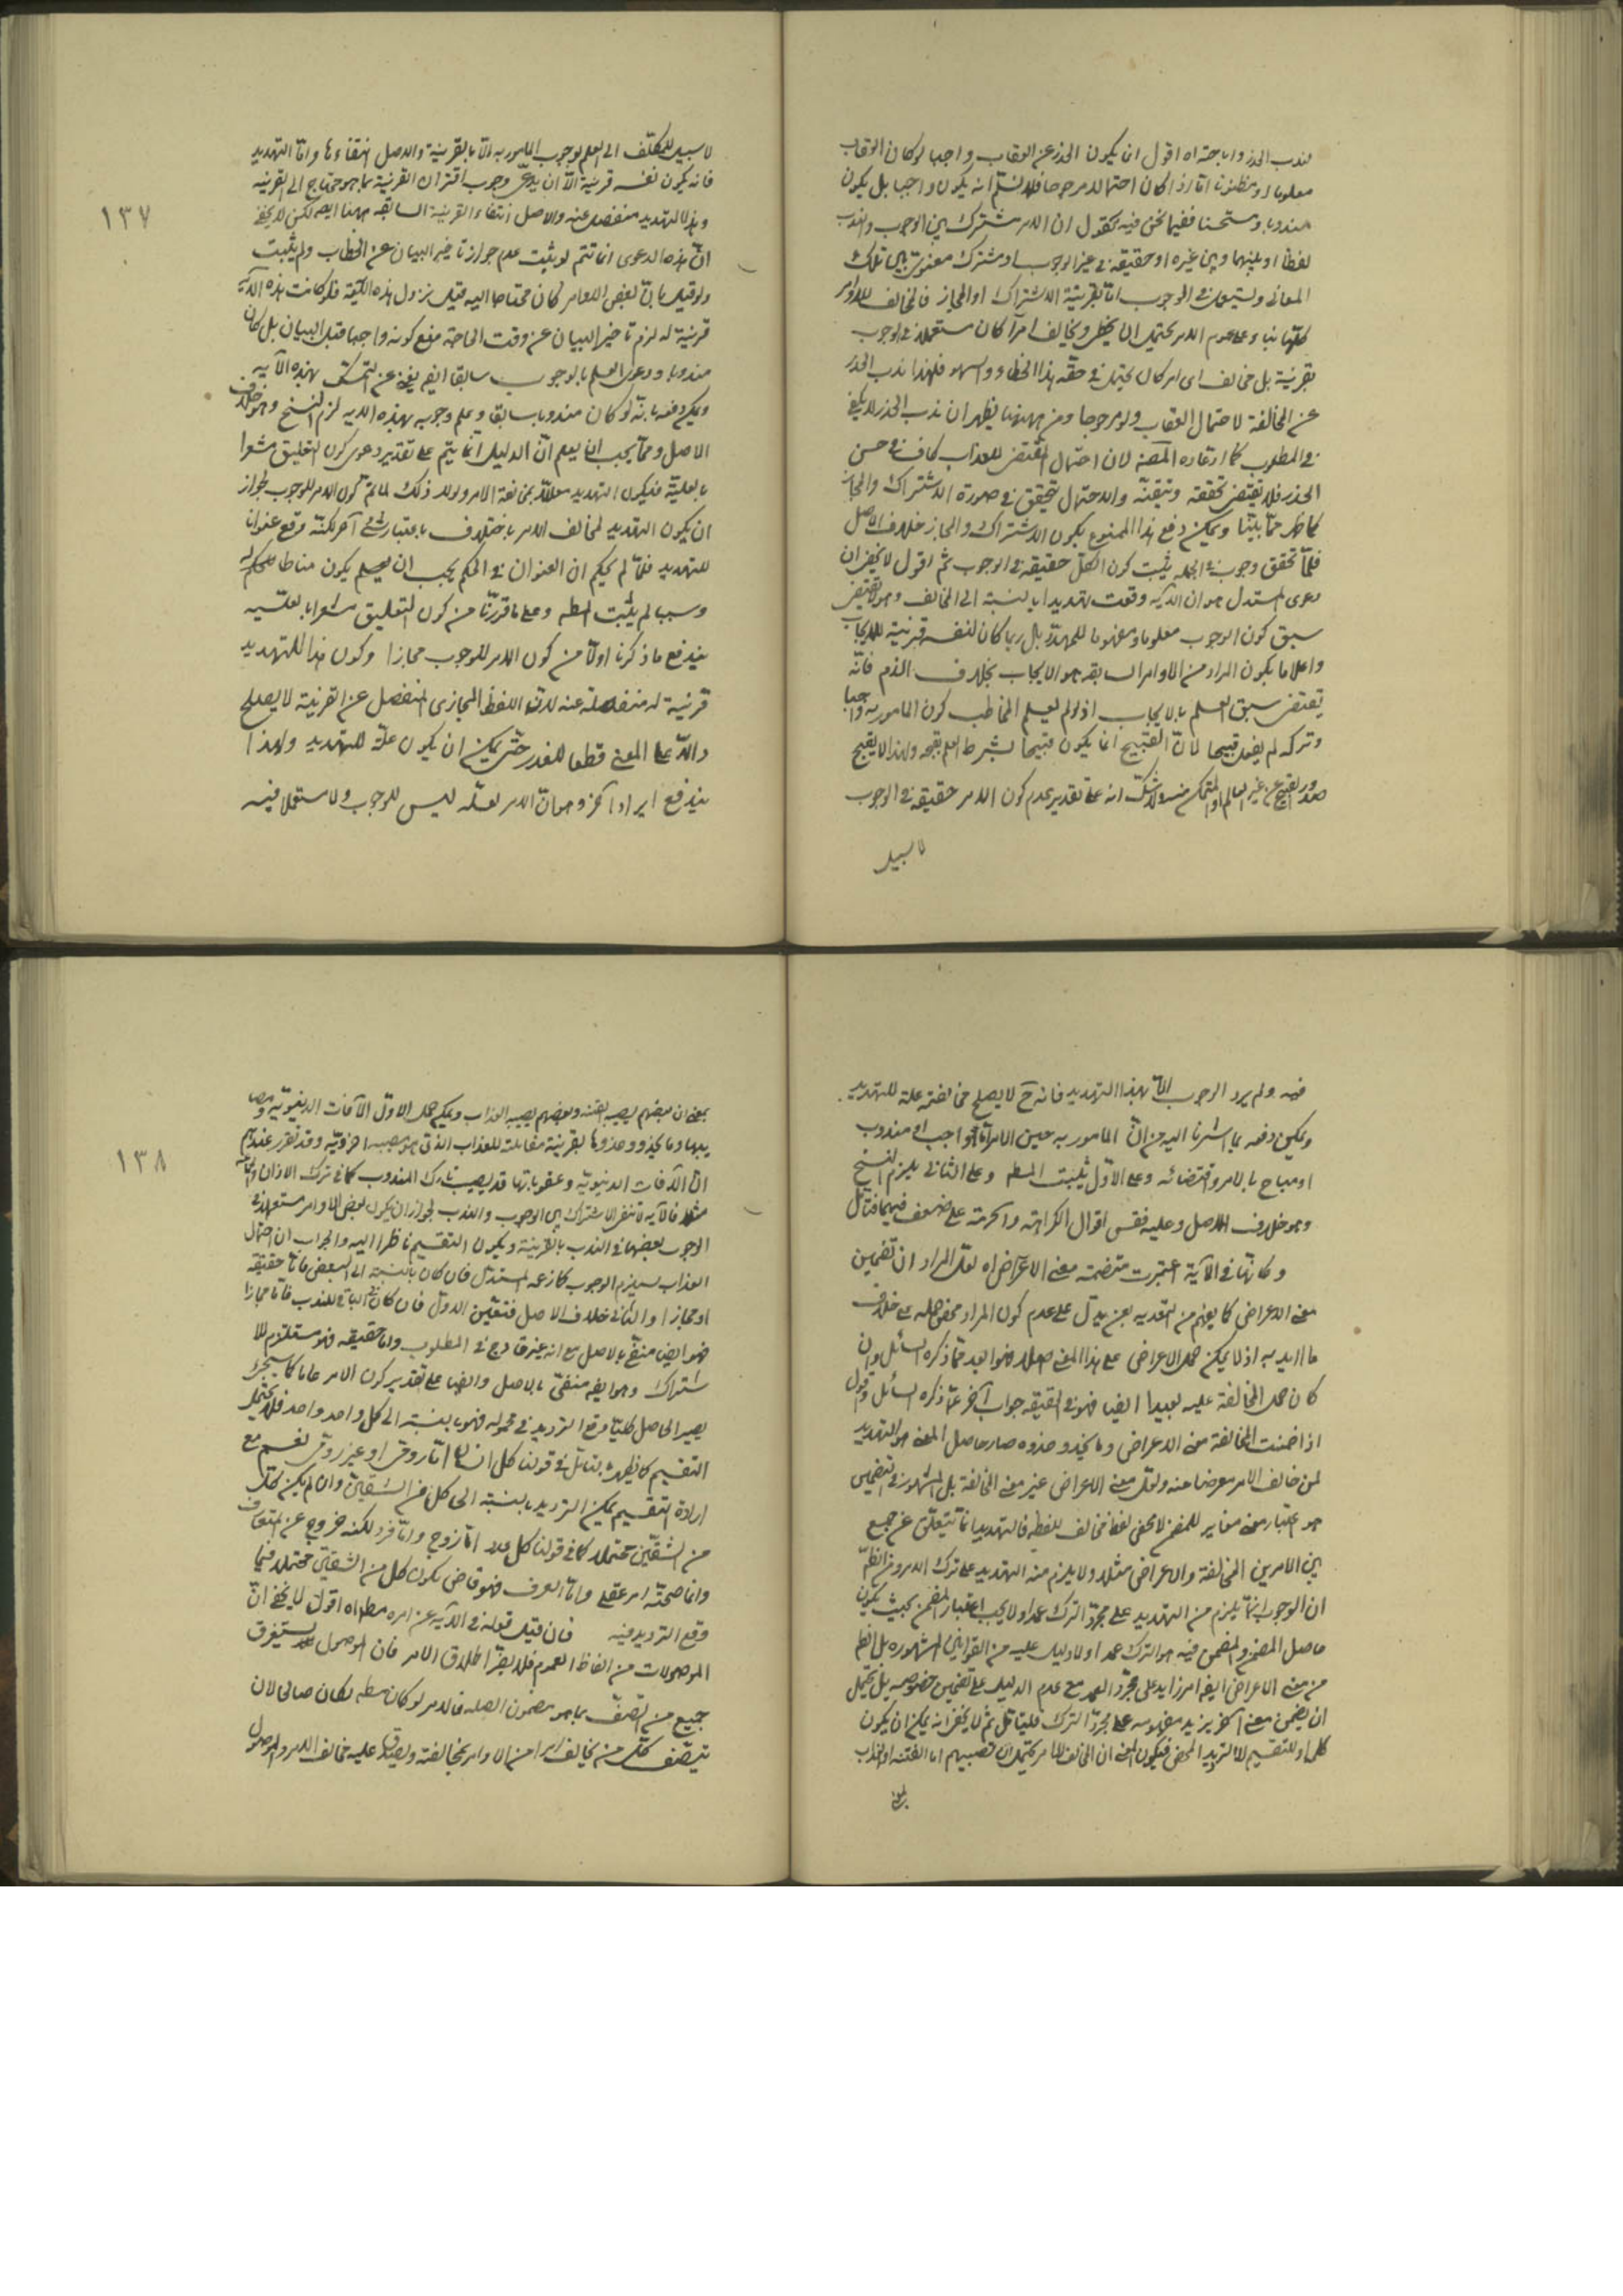 لندب الحذر واباحته اه اقول ان يكون الحذر عن العقاب واجبا لو كان العقاب
معلوما او مظنونا اما اذا كان احتمالا مرجوحا فلا نسلم انه يكون واجبا بل يكون
مندوبا ومستحسنا ففيما نحن فيه نقول ان الامر مشترك بين الوجوب والندب
لفظا او بينهما وبين غيره او حقيقة في غير الوجوب او مشترك معنوي بين تلك
المعاني ويستعمل في الوجوب اما بقرينة الاشتراك او المجاز فالمخالف للاوامر
كلها بناء على عموم الامر يحتمل ان يخطئ ويخالف امرا كان مستعملا في الوجوب
بقرينة بل مخالف اي امر كان يحتمل في حقه هذا الخطاء والسهو فلهذا ندب الحذر
عن المخالفة لاحتمال العقاب ولو مرجوحا ومن ههنا يظهر ان ندب الحذر لا يكفي
في المطلوب كما افاده المصنف لان احتمال المقتضي للعذاب كاف في حسن
الحذر فلا يقتضي تحققه وتيقنه والاحتمال يتحقق في صورة الاشتراك والمجاز
كما ظهر مما بينا ويمكن دفع هذا الممنوع بكون الاشتراك والمجاز خلاف الاصل
فلما تحقق وجوب في الجملة يثبت كون الكل حقيقة في الوجوب ثم اقول لا يخفى ان
دعوى المستدل هو ان الآية وقعت تهديدا بالنسبة الى المخالف وهو لا يقتضي
سبق كون الوجوب معلوما ومفهوما للمهدد بل ربما كان لنفسه قرينة للايجاب
واعلاما بكون المراد من الاوامر السابقة هو الايجاب بخلاف الذم فانه
يقتضي سبق العلم بالايجاب اذ لو لم يعلم المخاطب كون المامور به واجبا
وتركه لم يفعل قبيحا لان القبيح انما يكون قبيحا بشرط العلم بقبحه ولهذا لا يقبح
صدور القبيح عن غير العالم او المتمكن منه ولا شك انه على تقدير عدم كون الامر حقيقة في الوجوب
لا سبيل
لا سبيل للمكلف الى العلم بوجوب المامور به الا بالقرينة والاصل انتفاءها واما التهديد
فانه يكون نفسه قرينة الا ان يدعى وجوب اقتران القرينة بما هو محتاج الى القرينة
وهذا التهديد منفصل عنه والاصل انتفاء القرينة السابقة ههنا ايضا لكن لا يخفى
ان هذه الدعوى انما تتم لو يثبت عدم جواز تاخير البيان عن الخطاب ولم يثبت
ولو قيل بان بعض الاوامر كان محتاجا اليه قبل نزول هذه الآية فلو كانت هذه الآية
قرينة له لزم تاخير البيان عن وقت الحاجة منع كونه واجبا قبل البيان بل كان
مندوبا ودعوى العلم بالوجوب سابقا ايضا يغني عن التمسك بهذه الآية
ويمكن دفعه بانه لو كان مندوبا سابقا وعلم وجوبه بهذه الاية لزم النسخ وهو خلاف
الاصل ومما يجب ان يعلم ان الدليل انما يتم على تقدير دعوى كون التعليق مشعرا
بالعلية فيكون التهديد معللا بمخالفة الامر ولولا ذلك لما تم كون الامر للوجوب لجواز
ان يكون التهديد لمخالف الامر باختلاف باعتبار شيء آخر لكنه وقع عنوانا
للتهديد فلما لم يحكم ان العنوان في الحكم يجب ان يعلم يكون مناطا للحكم
وسببا لم يثبت المط وعلى ما قررنا من كون التعليق مشعرا بالعلية
يندفع ما ذكرنا اولا من كون الامر للوجوب مجازا وكون هذا التهديد
قرينة له منفصلة عنه لان اللفظ المجازي المنفصل عن القرينة لا يصلح
دالا على المعنى قطعا للغدر حتى يمكن ان يكون علة للتهديد ولهذا
يندفع ايراد آخر وهو ان الامر لعله ليس للوجوب ولا مستعملا فيه
١٣٧
فيه ولم يرد الوجوب الا بهذا التهديد فانه ح لا يصلح مخالفته علة للتهديد
ويمكن دفعه بما اشرنا اليه من ان المامور به حين الامر اما واجب او مندوب
او مباح بالامر واقتضائه وعلى الاول يثبت المط وعلى الثاني يلزم النسخ
وهو خلاف الاصل وعليه فقس اقوال الكراهة والحرمة على ضعف فيهما فتامل
وكانها في الآية اعتبرت متضمنة معنى الاعراض اه لعل المراد ان تضمين
معنى الاعراض كما يفهم من التعدية بعن يدل على عدم كون المراد محض حمله على خلاف
ما اريد به اذ لا يمكن حمل الاعراض على هذا المعنى اصلا فهو ابعد مما ذكره السائل وان
كان حمل المخالفة عليه بعيدا ايضا فهو في الحقيقة جواب آخر عما ذكره السائل ونقول
اذا ضمنت المخالفة معنى الاعراض وما يحذو حذوه صار حاصل المعنى هو التهديد
لمن خالف الامر معرضا عنه ولعل معنى الاعراض غير معنى المخالفة بل المشهور في التضمين
هو اعتبار معنى مغاير للمضمن لا محض لفظ مخالف للفظه فالتهديد انما يتعلق عن جمع
بين الامرين المخالفة والاعراض مثلا ولا يلزم منه التهديد على ترك الامر ومن الظ
ان الوجوب انما يلزم من التهديد على مجرد الترك عمدا ولا يجب اعتبار المضمن بحيث يكون
حاصل المضمن والمضمن فيه هو الترك عمدا ولا دليل عليه من القوانين المشهورة بل الظ
من معنى الاعراض ايضا امر زايد على مجرد العمد مع عدم الدليل على تضمين خصوصه بل يحتمل
ان يضمن معنى آخر يزيد مفهومه على مجرد الترك فليتامل ثم لا يخفى انه يمكن ان يكون
كلمة او للتقسيم لا للترديد المحض فيكون المعنى ان المخالف للامر يحتمل ان تصيبهم اما الفتنة او العذاب
بمعنى
بمعنى ان بعضهم يصيبه الفتنة وبعضهم يصيبه العذاب ويمكن حمل الاول الآفات الدنيوية ومصا
يبها وما يحذو حذوها بقرينة مقابلة للعذاب الذي هو مصيبة اخروية وقد تقرر عندهم
ان الآفات الدنيوية وعقوباتها قد يصيب تارك المندوب كما في ترك الاذان
مثلا فالآية لا تنفي الاشتراك بين الوجوب والندب لجواز ان يكون بعض الاوامر مستعملا في
الوجوب بعضها في الندب بالقرينة ويكون التقسيم ناظرا اليه والجواب ان احتمال
العذاب يستلزم الوجوب كما زعمه المستدل فان كان بالنسبة الى البعض فاما حقيقة
او مجازا والثاني خلاف الاصل فتعين الاول فان كان الباقي للندب فاما مجازا
فهو ايضا منفي بالاصل مع انه غير قادح في المطلوب واما حقيقة فهو مستلزم للا
شتراك وهو ايضا منفي بالاصل وايضا على تقدير كون الامر عاما كما سيجئ
يصير الحاصل كليا وقع الترديد في محموله فهو بالنسبة الى كل واحد واحد فلا يحتمل
التقسيم كما يظهر بالتامل في قولنا كل انسان اما رومي او غير رومي نعم مع
ارادة التقسيم يمكن الترديد بالنسبة الى كل من الشقين وان لم يكن كل
من الشقين محتملا كما في قولنا كل عدد اما زوج واما فرد لكنه خروج عن المتعارف
وانما صححه امر عقلي واما العرف فهو قاض بكون كل من الشقين محتملا فيما
وقع الترديد فيه فان قيل قوله في الآية عن امره مطلق اه اقول لا يخفى ان
الموصولات من الفاظ العموم فلا يضر اطلاق الامر فان الموصول يستغرق
جميع من اتصف بما هو مضمون الصلة فالامر لو كان مطلقا لكان صالحا لان
يتصف كل من يخالف امرا من الاوامر بمخالفته ويصدق عليه مخالف الامر والموصول
١٣٨